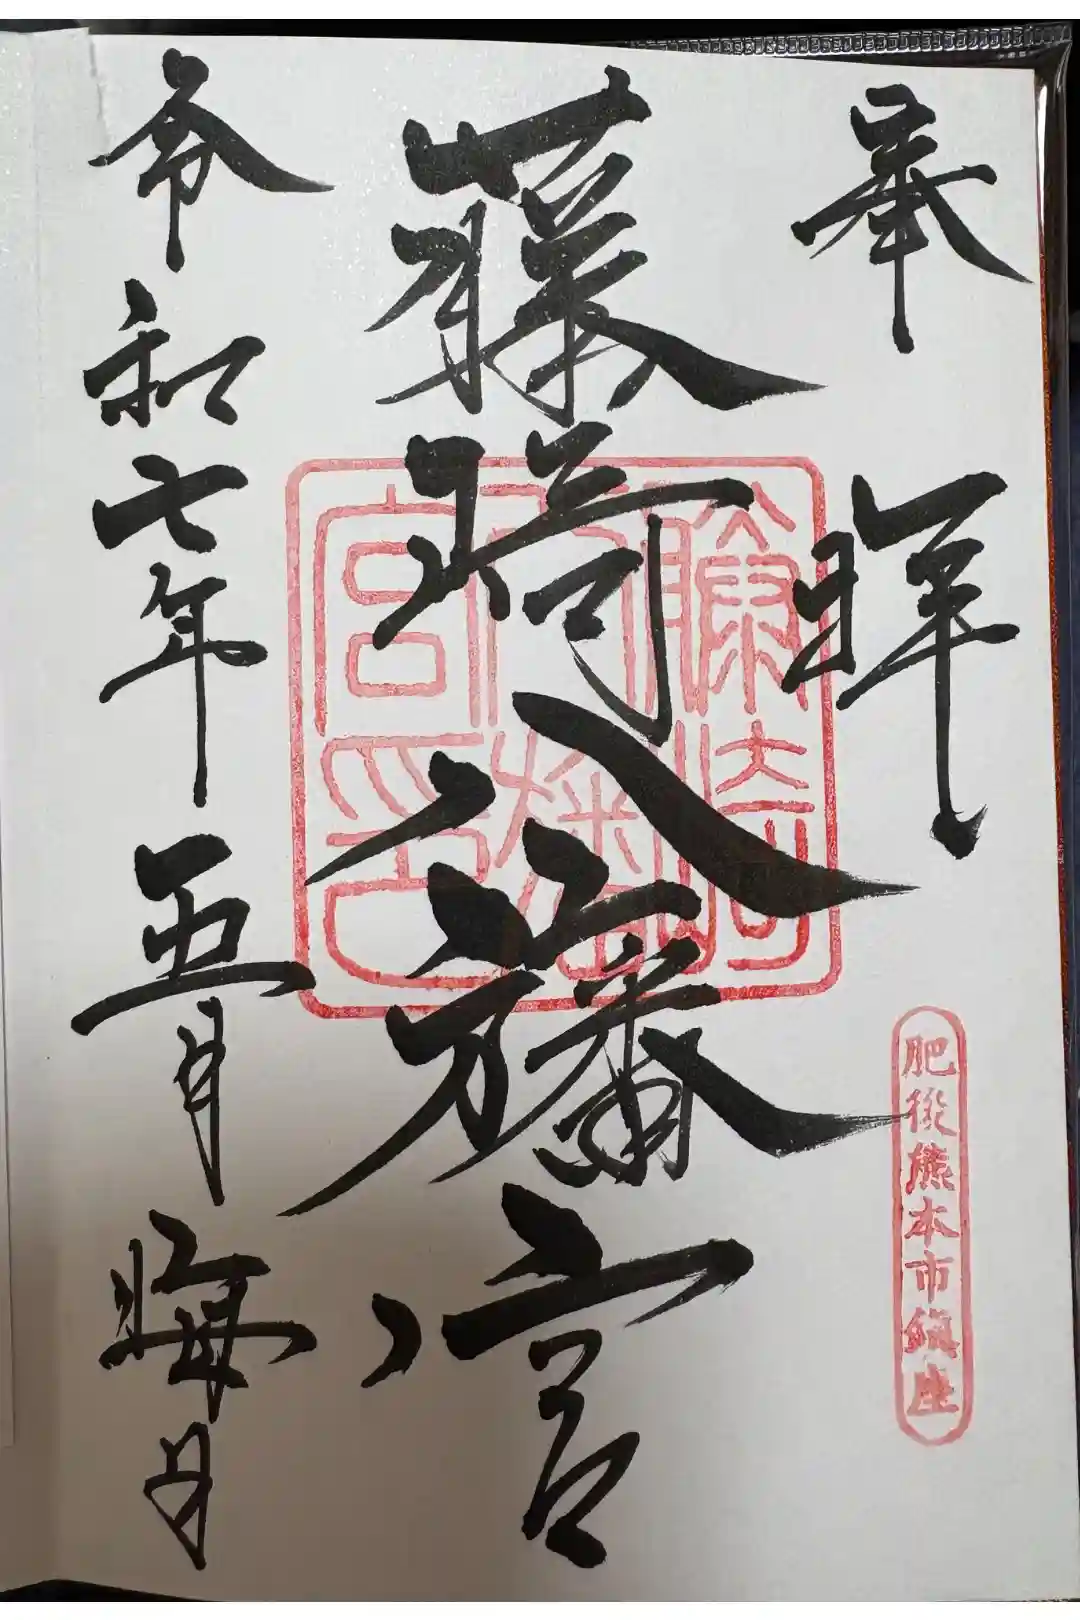 奉拝
肥後熊本市鎮座
藤崎八旛宮
藤崎八旛宮印
令和七年五月晦日